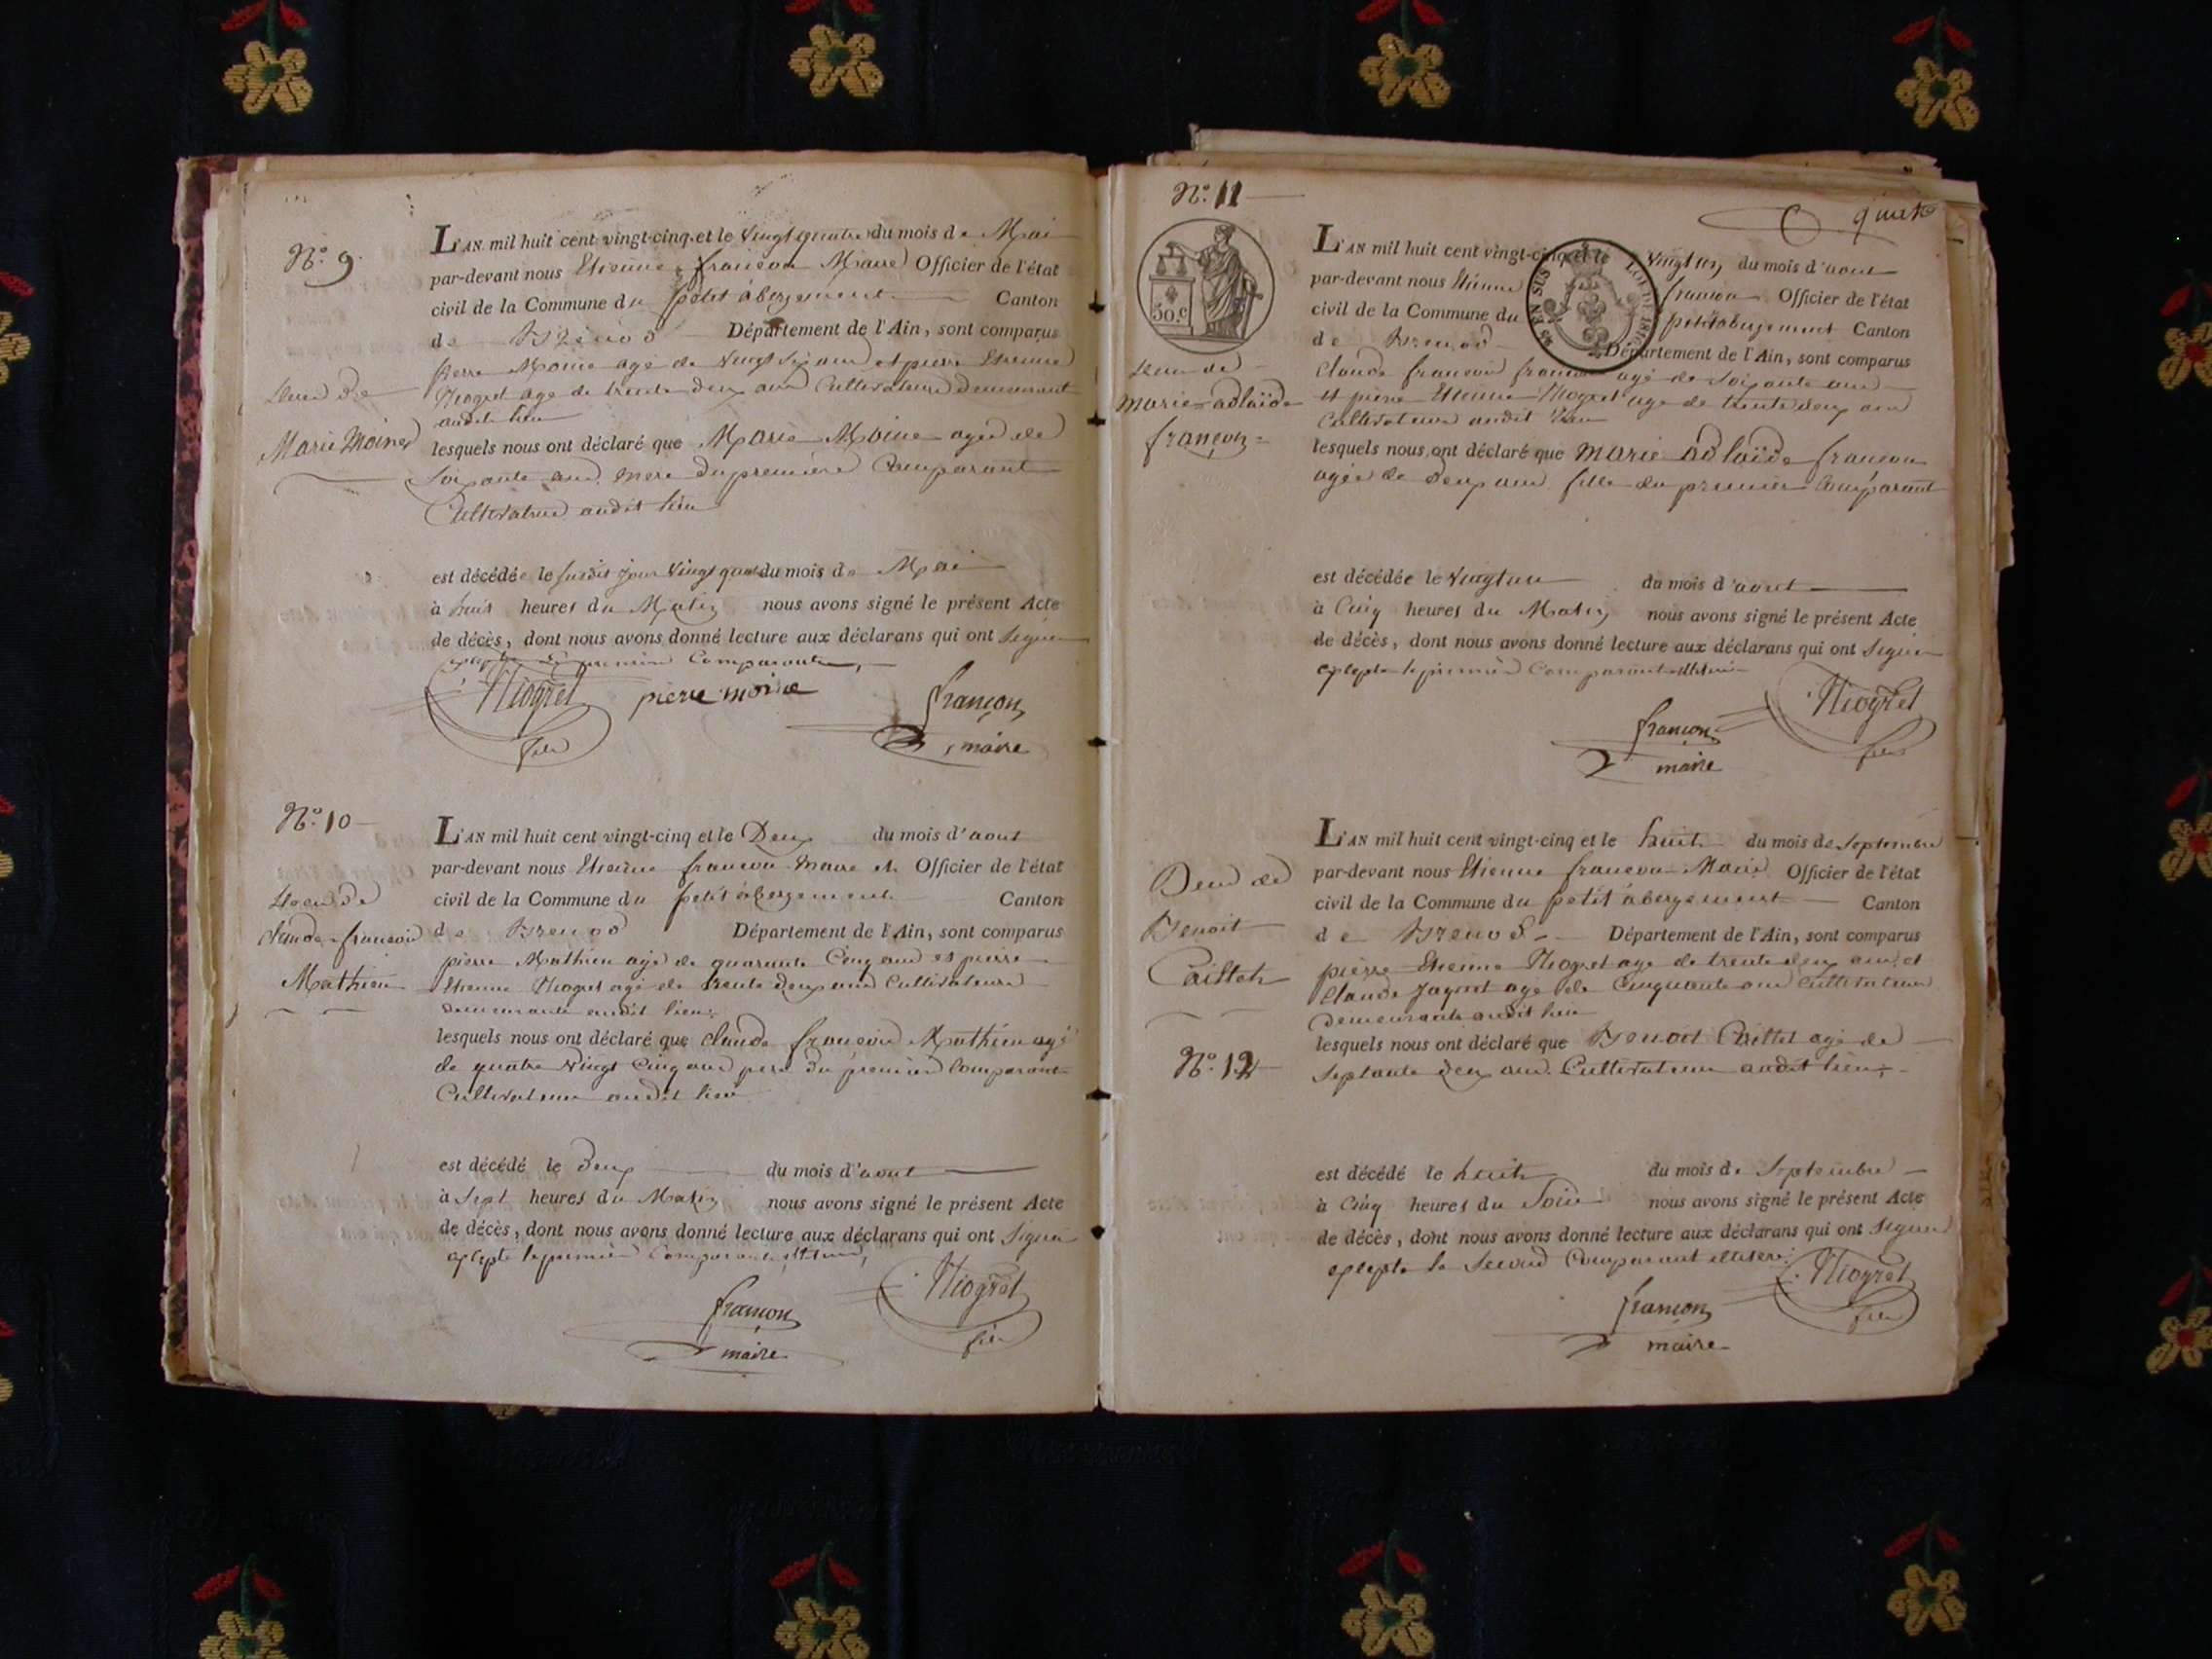 N.° 9.
L'AN mil huit cent vingt-cinq et le vingt quatre du mois de Mai
par-devant nous Etienne françon Maire Officier de l'état
civil de la Commune du petit abergement Canton
de Brénod Département de l'Ain, sont comparus
pierre Moine agé de vingt ans et pierre Etienne
Niogret agé de trente deux ans Cultivateurs demeurant
audit lieu
Marie Moine
lesquels nous ont déclaré que Marie Moine agée de
soixante ans mere du premier Comparant
Cultivatrice audit lieu
est décédée le susdit jour vingt quatre du mois de Mai
à huit heures du Matin nous avons signé le présent Acte
de décès, dont nous avons donné lecture aux déclarans qui ont signé
premier Comparant
Niogret pierre moine françon
fils maire
N.° 10
L'AN mil huit cent vingt-cinq et le Deux du mois d'aout
par-devant nous Etienne françon maire et Officier de l'état
civil de la Commune du petit abergement Canton
de Brenod Département de l'Ain, sont comparus
claude françois
Mathieu
pierre Mathieu agé de quarante Cinq ans et pierre
Etienne Niogret agé de trente deux ans Cultivateurs
demeurants audit lieu
lesquels nous ont déclaré que claude françois Mathieu agé
de quatre vingt Cinq ans pere du premier Comparant
Cultivateur audit lieu
est décédé le deux du mois d'aout
à sept heures du Matin nous avons signé le présent Acte
de décès, dont nous avons donné lecture aux déclarans qui ont signé
excepté le premier Comparant
françon Niogret
maire fils
N.° 11
50.c
EN SUS LOI DE 1816
L'AN mil huit cent vingt-cinq et le vingt un du mois d'aout
par-devant nous Etienne françon Officier de l'état
civil de la Commune du petit abergement Canton
de Brenod Département de l'Ain, sont comparus
marie adlaïde
françon
claude françois françon agé de soixante ans
et pierre Etienne Niogret agé de trente deux ans
Cultivateurs audit lieu
lesquels nous ont déclaré que marie adlaïde françon
agée de deux ans fille du premier Comparant
est décédée le vingt un du mois d'aout
à Cinq heures du Matin nous avons signé le présent Acte
de décès, dont nous avons donné lecture aux déclarans qui ont signé
excepté le premier Comparant
françon Niogret
maire fils
L'AN mil huit cent vingt-cinq et le huit du mois de septembre
par-devant nous Etienne françon Maire Officier de l'état
civil de la Commune du petit abergement Canton
de Brenod Département de l'Ain, sont comparus
Benoit
pierre Etienne Niogret agé de trente deux ans et
Claude agé de Cinquante ans Cultivateurs
demeurants audit lieu
lesquels nous ont déclaré que Benoit agé de
N.° 12
septante deux ans Cultivateur audit lieu
est décédé le huit du mois de septembre
à Cinq heures du soir nous avons signé le présent Acte
de décès, dont nous avons donné lecture aux déclarans qui ont signé
excepté le second Comparant
françon Niogret
maire fils